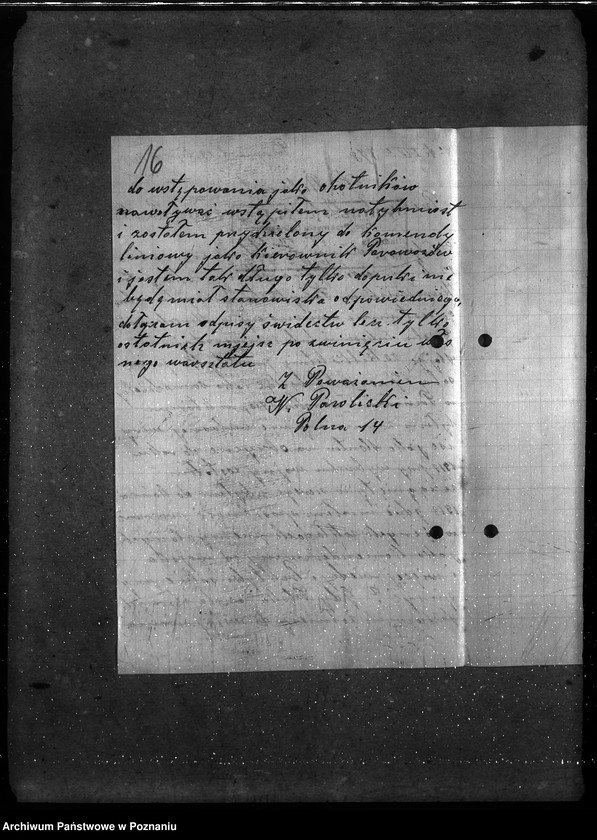 16
do wstępowania jako ochotników
nawoływać wstąpiłem natychmiast
i zostałem przydzielony do komendy
liniowy jako kierownik Parowozów
i jestem tak długo tylko dopuki nie
będę miał stanowiska odpowiedniego,
dołączam odpisy świdectw lecz tylko
ostatnich miejsc po zwinięciu włas
nego warsztatu
Z Poważaniem
W. Pawlicki
Polna 14
Archiwum Państwowe w Poznaniu